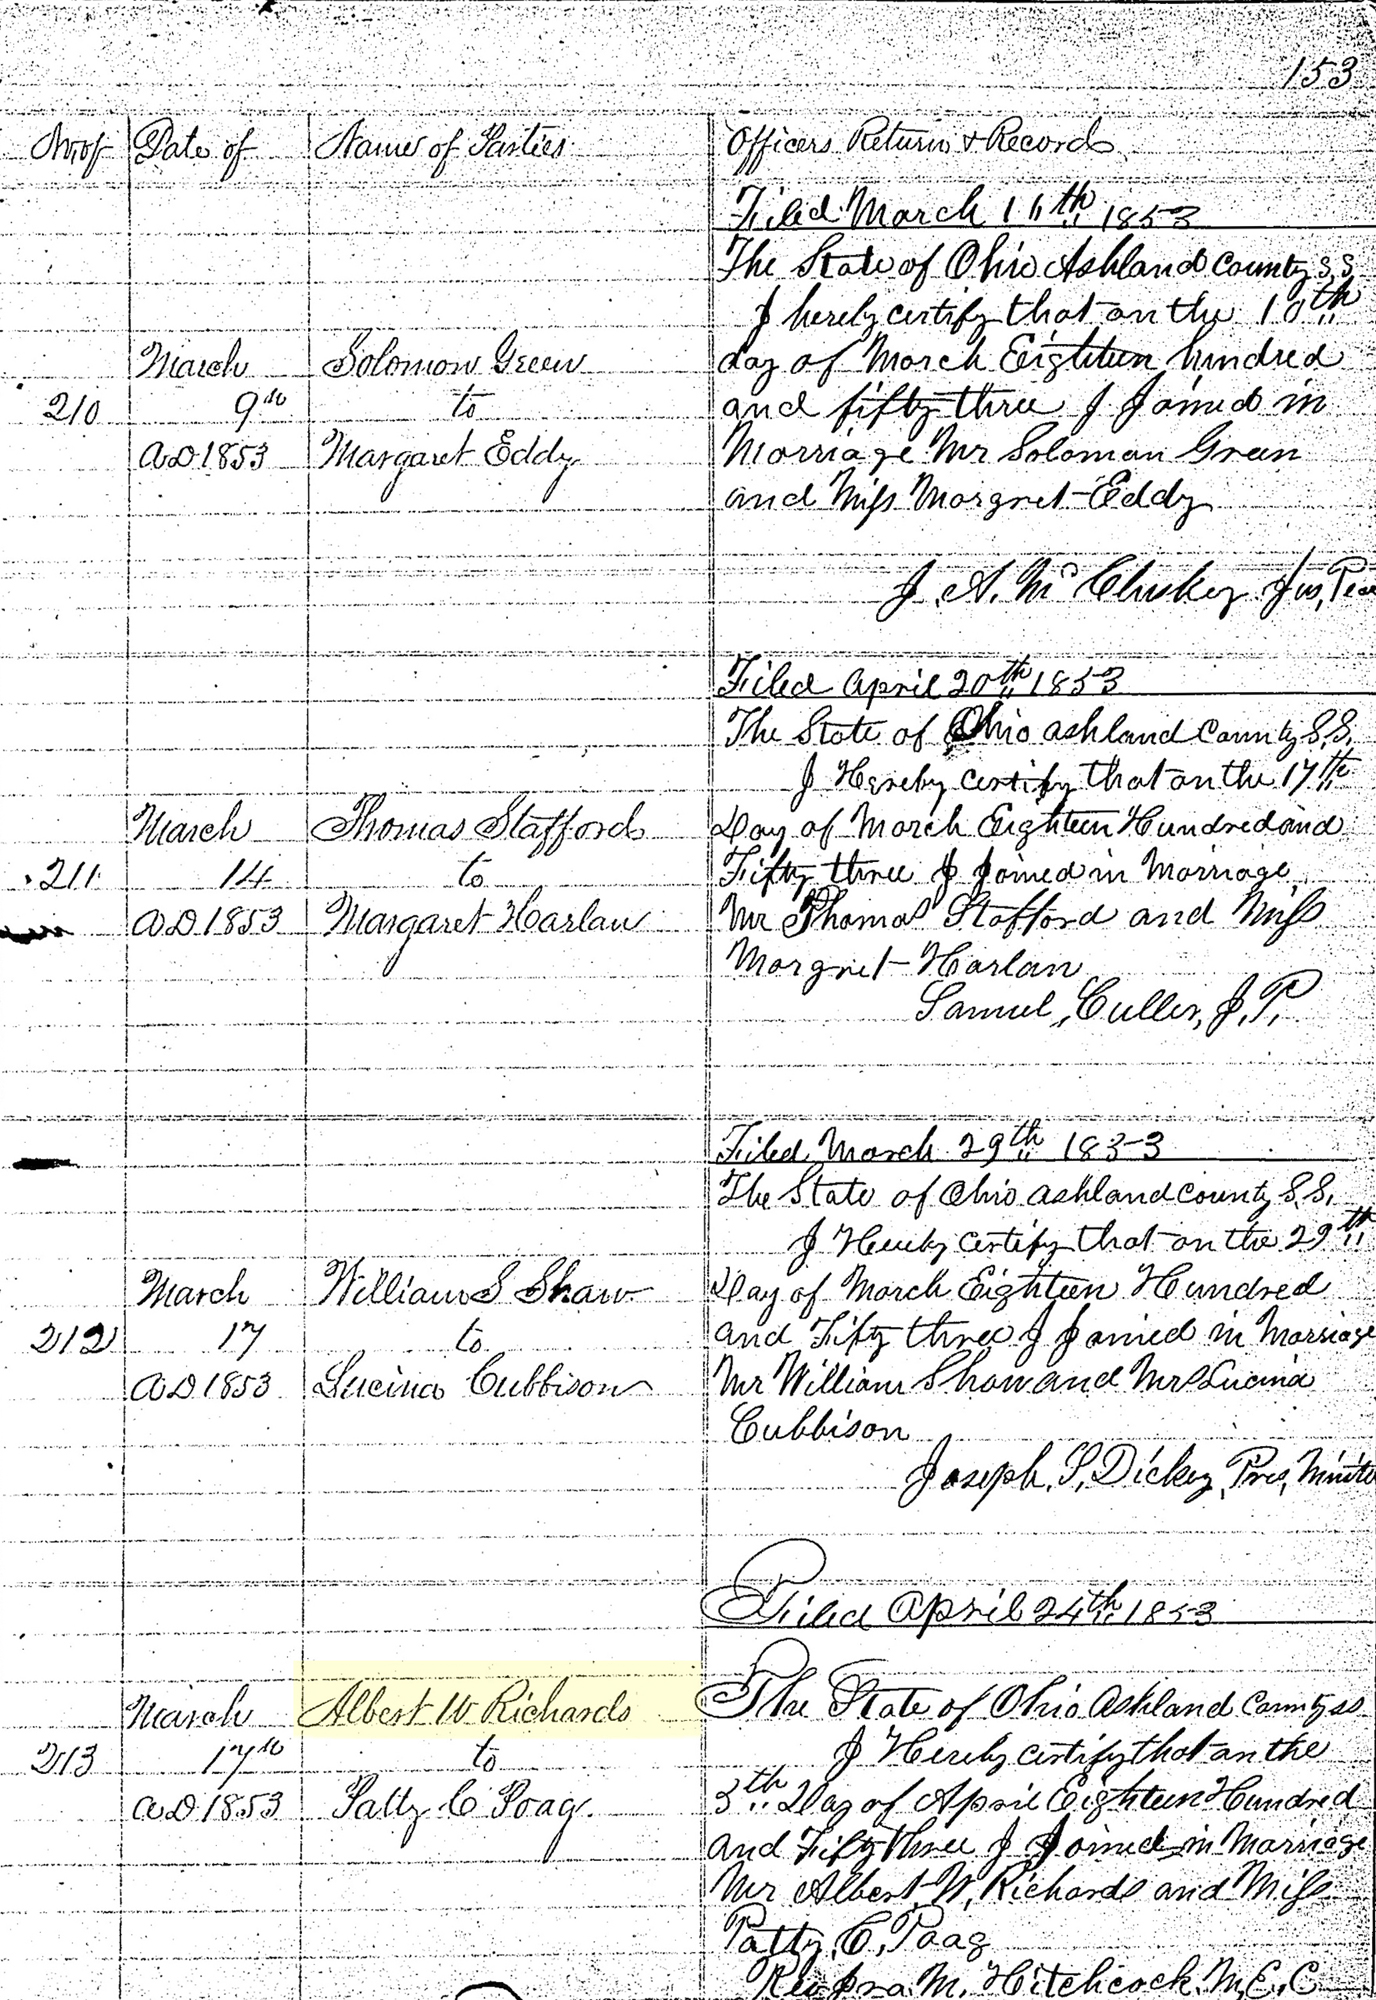 153
No of Date of Name of Parties Officers Return & Record
Filed March 11th 1853
The State of Ohio Ashland County S,S,
I hereby certify that on the 10th
March Solomon Green day of March Eighteen hundred
210 9th to and fifty three I Joined in
AD 1853 Margaret Eddy Marriage Mr Soloman Green
and Miss Margret Eddy
J. A. Mc Cluskey Jus, Pea
Filed April 20th 1853
The State of Ohio Ashland County S.S.
I Hereby certify that on the 17th
March Thomas Stafford Day of March Eighteen Hundred and
211 14 to Fifty three I Joined in Marriage
AD 1853 Margaret Harlan Mr Thomas Stafford and Miss
Margret Harlan
Samuel, Culler, J, P,
Filed March 29th 1853
The State of Ohio Ashland County S.S.
I Hereby certify that on the 29th
March William S Shaw Day of March Eighteen Hundred
212 17 to and Fifty three I Joined in Marriage
AD 1853 Lucina Cubbison Mr William Shaw and Mrs Lucina
Cubbison
Joseph. S, Dickey, Pres, Ministe
Filed April 24th 1853
March Albert W Richards The State of Ohio Ashland County ss
213 17th to I Hereby certify that on the
AD 1853 Patty C Poag. 3th Day of April Eighteen Hundred
and Fifty three I Joined in Marriage
Mr Albert W, Richards and Miss
Patty, C, Poag
Rev Ira. M. Hitchcock. M, E, C